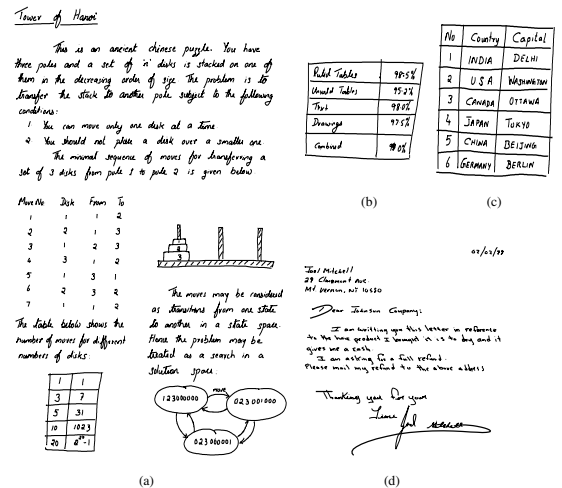 Tower of Hanoi
This is an ancient chinese puzzle. You have
three poles and a set of 'n' disks is stacked on one of
them in the decreasing order of size The problem is to
transfer the stack to another pole subject to the following
conditions:
1 You can move only one disk at a time
2 You should not place a disk over a smaller one
The minimal sequence of moves for transferring a
set of 3 disks from pole 1 to pole 2 is given below
Move No Disk From To
1 1 1 2
2 2 1 3
3 1 2 3
4 3 1 2
5 1 3 1
6 2 3 2
7 1 1 2
The table below shows the
number of moves for different
numbers of disks:
1 1
3 7
5 31
10 1023
20 2^20-1
1
2
3
The moves may be considered
as transitions from one state
to another in a state space.
Hence the problem may be
treated as a search in a
solution space.
move
123000000
023001000
023000001
(a)
Ruled Tables 98.5%
Unruled Tables 95.2%
Text 98.0%
Drawings 97.5%
Combined
(b)
No Country Capital
1 INDIA DELHI
2 USA WASHINGTON
3 CANADA OTTAWA
4 JAPAN TOKYO
5 CHINA BEIJING
6 GERMANY BERLIN
(c)
02/02/99
Joel Mitchell
29 Claremont Ave.
Mt Vernon, NY 10550
Dear Johnson Company:
I am writting you this letter in reference
to the new product I bought it is to big and it
gives me a rash.
I am asking for a full refund.
Please mail my refund to the above address
Thanking you for your
Time
Joel Mitchell
(d)